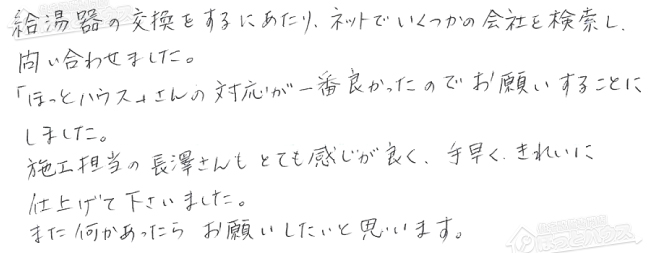 給湯器の交換をするにあたり、ネットでいくつかの会社を検索し、
問い合わせました。
「ほっとハウス」さんの対応が一番良かったのでお願いすることに
しました。
施工担当の長澤さんもとても感じが良く、手早く、きれいに
仕上げて下さいました。
また何かあったらお願いしたいと思います。